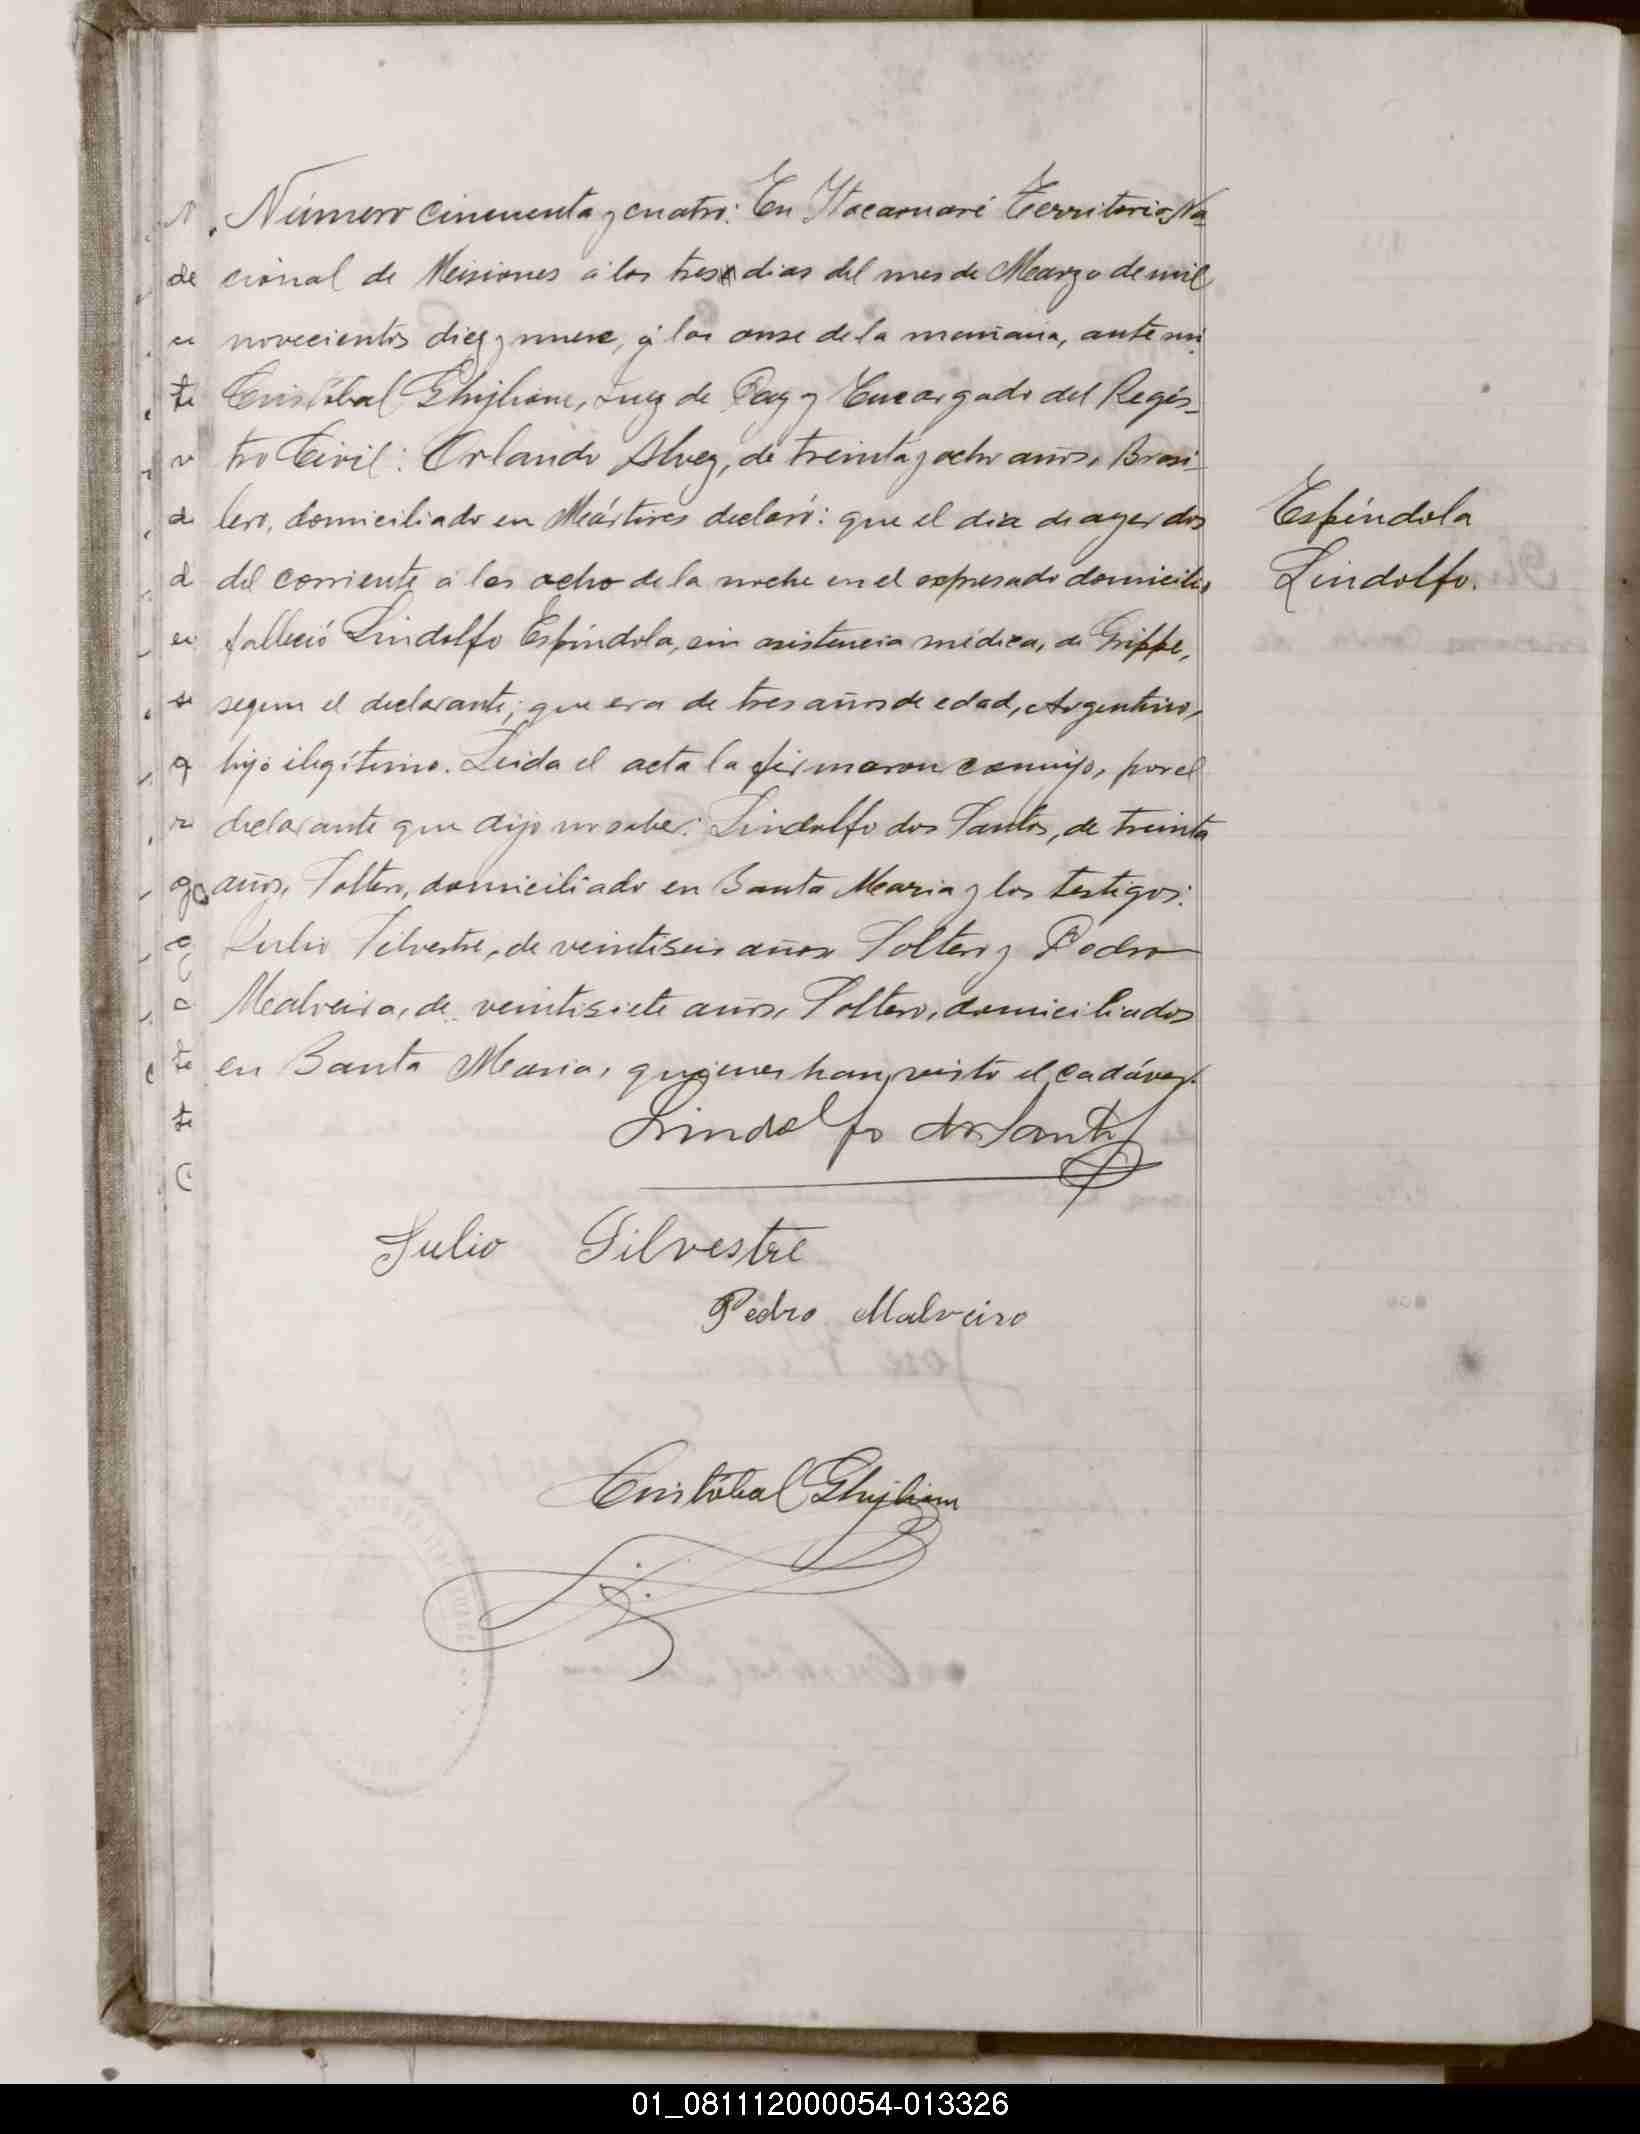 Número cincuenta y cuatro: En Itacaruaré Territorio Na-
cional de Misiones á los tres dias del mes de Marzo de mil
novecientos diez y nueve, á las onse de la mañana, ante mi
Cristóbal Ghiglione, Juez de Paz y Encargado del Regis-
tro Civil: Orlando Alvez, de treinta y ocho años, Brasi-
lero, domiciliado en Mártires declaró: que el dia de ayer dos
del corriente á las ocho de la noche en el expresado domicilio
falleció Lindolfo Espíndola, sin asistencia médica, de Grippe,
segun el declarante; que era de tres años de edad, Argentino,
hijo ilegítimo. Leida el acta la firmaron conmigo, por el
declarante que dijo no saber: Lindolfo dos Santos, de treinta
años, Soltero, domiciliado en Santa Maria y los testigos:
Julio Silvestre, de veintiseis años Soltero y Pedro
Malveira, de veintisiete años, Soltero, domiciliados
en Santa Maria, quienes han visto el cadáver.
Espíndola
Lindolfo.
Lindolfo dos Santos
Julio Silvestre
Pedro Malveiro
Cristóbal Ghiglione
01_081112000054-013326